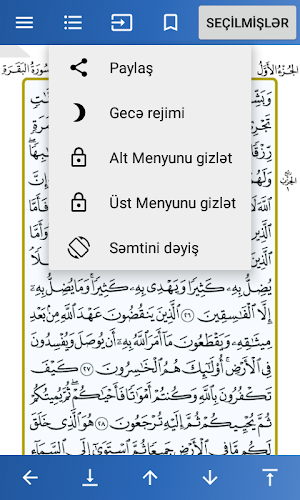 SEÇİLMİŞLƏR
سُورَةُ البَقَرَة
الجُزءُ الأَوَّل
Paylaş
Gecə rejimi
Alt Menyunu gizlət
Üst Menyunu gizlət
Səmtini dəyiş
يُضِلُّ بِهِۦ كَثِيرًا وَيَهْدِى بِهِۦ كَثِيرًا وَمَا يُضِلُّ بِهِۦٓ
إِلَّا ٱلْفَٰسِقِينَ ٢٦ ٱلَّذِينَ يَنقُضُونَ عَهْدَ ٱللَّهِ مِنۢ بَعْدِ
مِيثَٰقِهِۦ وَيَقْطَعُونَ مَآ أَمَرَ ٱللَّهُ بِهِۦٓ أَن يُوصَلَ وَيُفْسِدُونَ
فِى ٱلْأَرْضِ أُو۟لَٰٓئِكَ هُمُ ٱلْخَٰسِرُونَ ٢٧ كَيْفَ
تَكْفُرُونَ بِٱللَّهِ وَكُنتُمْ أَمْوَٰتًا فَأَحْيَٰكُمْ ثُمَّ يُمِيتُكُمْ
ثُمَّ يُحْيِيكُمْ ثُمَّ إِلَيْهِ تُرْجَعُونَ ٢٨ هُوَ ٱلَّذِى خَلَقَ
لَكُم مَّا فِى ٱلْأَرْضِ جَمِيعًا ثُمَّ ٱسْتَوَىٰٓ إِلَى ٱلسَّمَآءِ